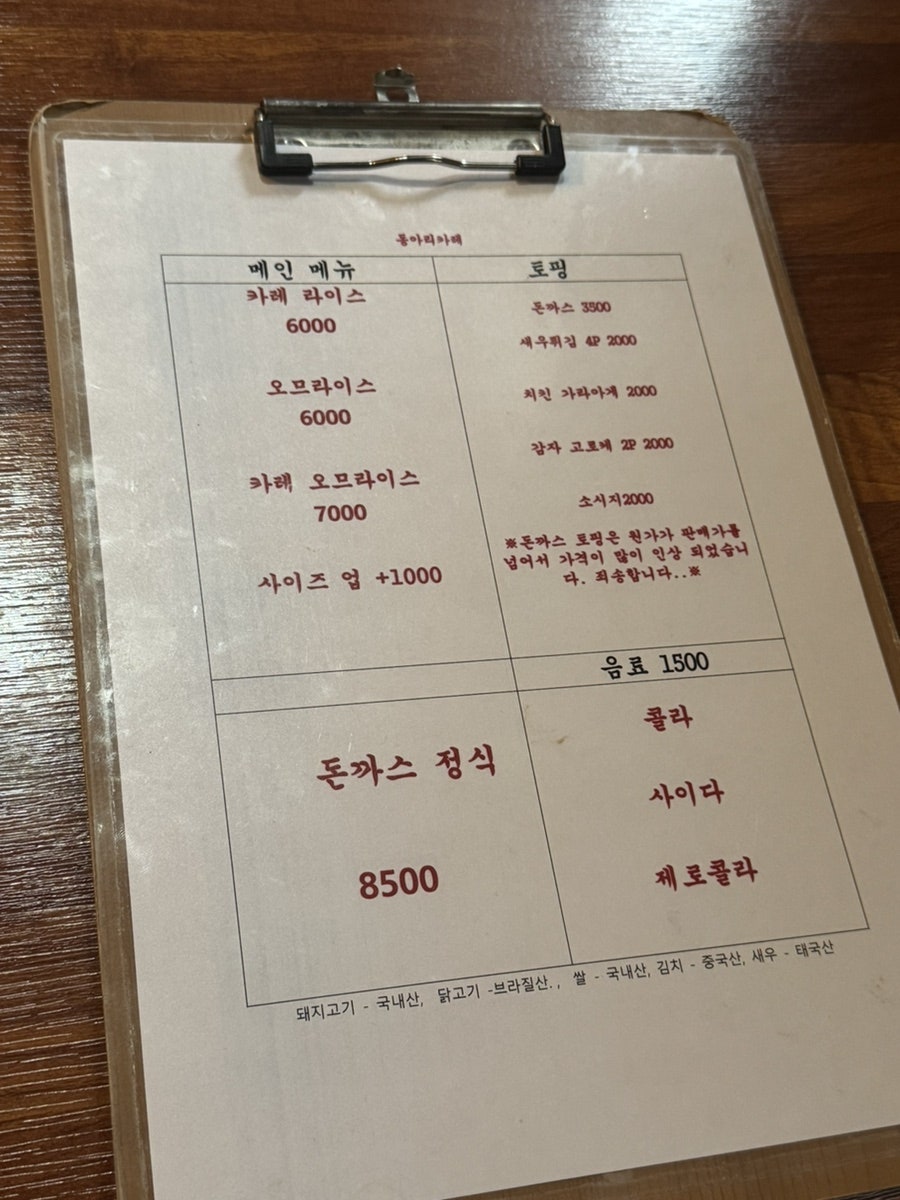 동아리카레
메인 메뉴
카레 라이스
6000
오므라이스
6000
카레 오므라이스
7000
사이즈 업 +1000
토핑
돈까스 3500
새우튀김 4P 2000
치킨 가라아게 2000
감자 고로케 2P 2000
소시지2000
※돈까스 토핑은 원가가 판매가를
넘어서 가격이 많이 인상 되었습니
다. 죄송합니다..※
돈까스 정식
8500
음료 1500
콜라
사이다
제로콜라
돼지고기 - 국내산, 닭고기 -브라질산. , 쌀 - 국내산, 김치 - 중국산, 새우 - 태국산